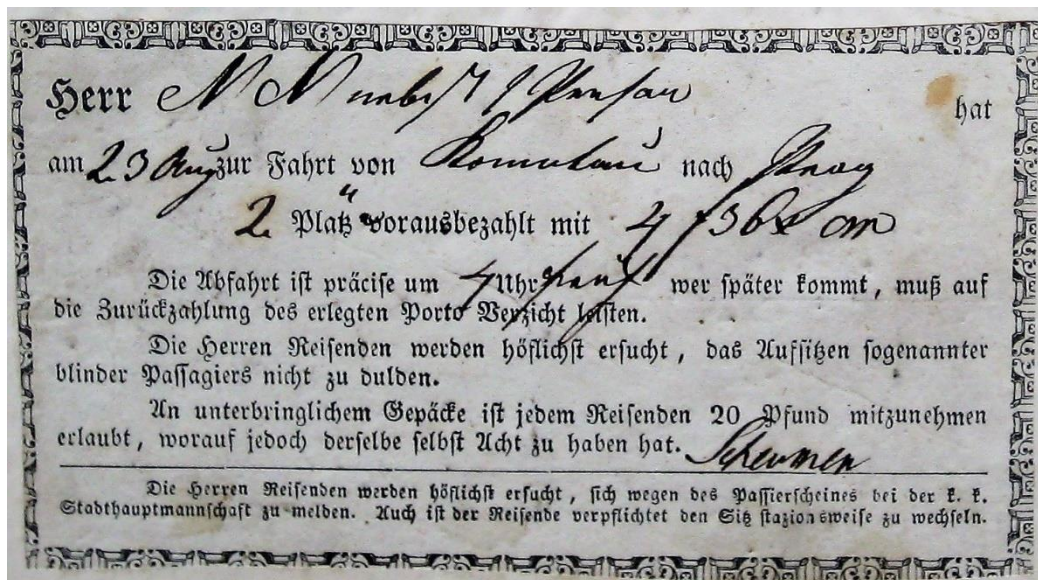 Herr N N nebst 1 Person hat
am 23 Aug zur Fahrt von Komotau nach Prag
2 Platz vorausbezahlt mit 4 f 36 x CM
Die Abfahrt ist präcise um 4 Uhr früh wer später kommt, muß auf
die Zurückzahlung des erlegten Porto Verzicht leisten.
Die Herren Reisenden werden höflichst ersucht, das Aufsitzen sogenannter
blinder Passagiers nicht zu dulden.
An unterbringlichem Gepäcke ist jedem Reisenden 20 Pfund mitzunehmen
erlaubt, worauf jedoch derselbe selbst Acht zu haben hat.
Die Herren Reisenden werden höflichst ersucht, sich wegen des Passierscheines bei der k. k.
Stadthauptmannschaft zu melden. Auch ist der Reisende verpflichtet den Sitz stazionsweise zu wechseln.